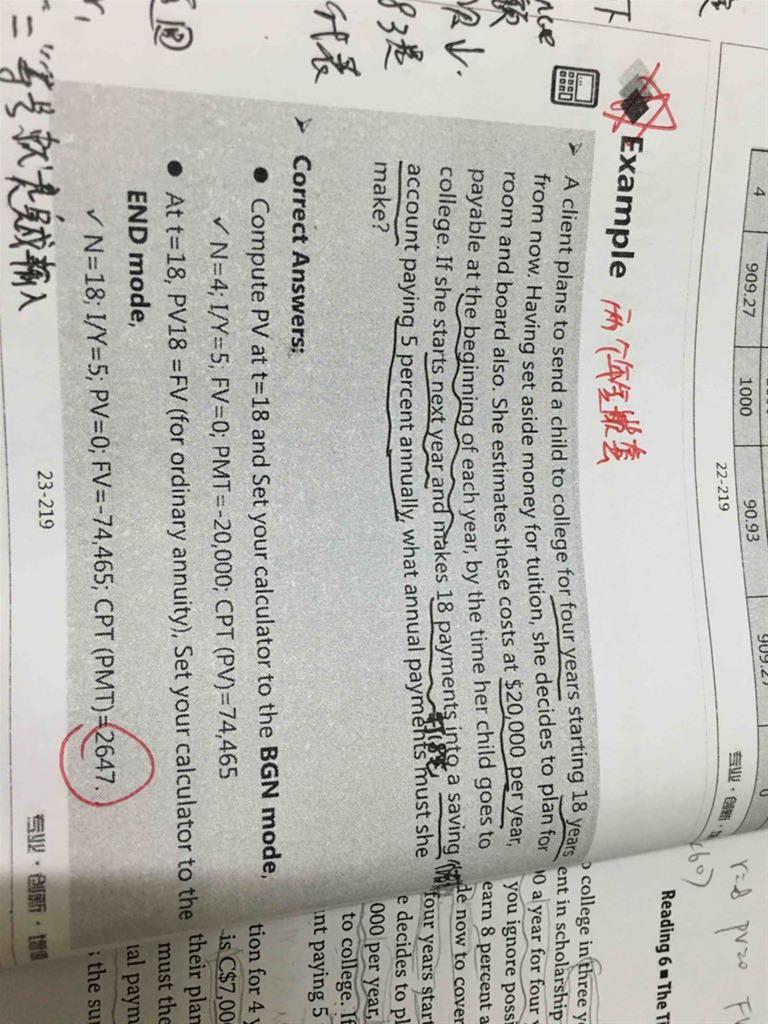 4 909.27 1000 90.93 909.27
0
22-219
专业·创新·增
Example 两个年金嵌套
➢ A client plans to send a child to college for four years starting 18 years
from now. Having set aside money for tuition, she decides to plan for
room and board also. She estimates these costs at $20,000 per year,
payable at the beginning of each year, by the time her child goes to
college. If she starts next year and makes 18 payments into a saving
account paying 5 percent annually, what annual payments must she
make?
➢ Correct Answers:
● Compute PV at t=18 and Set your calculator to the BGN mode,
✓ N=4; I/Y=5; FV=0; PMT=-20,000; CPT (PV)=74,465
● At t=18, PV18 =FV (for ordinary annuity), Set your calculator to the
END mode,
✓ N=18; I/Y=5; PV=0; FV=-74,465; CPT (PMT)=2647.
23-219
专业·创新·增值
代表
83是
图
"=" 等号就是完成输入
Reading 6 ■ The T
college in three y
ent in scholarship
0 a year for four
you ignore possi
earn 8 percent a
de now to cover
four years start
e decides to pl
000 per year,
to college. If
nt paying 5
tion for 4 y
is C$7,00
their plan
must the
ial paym
; the su